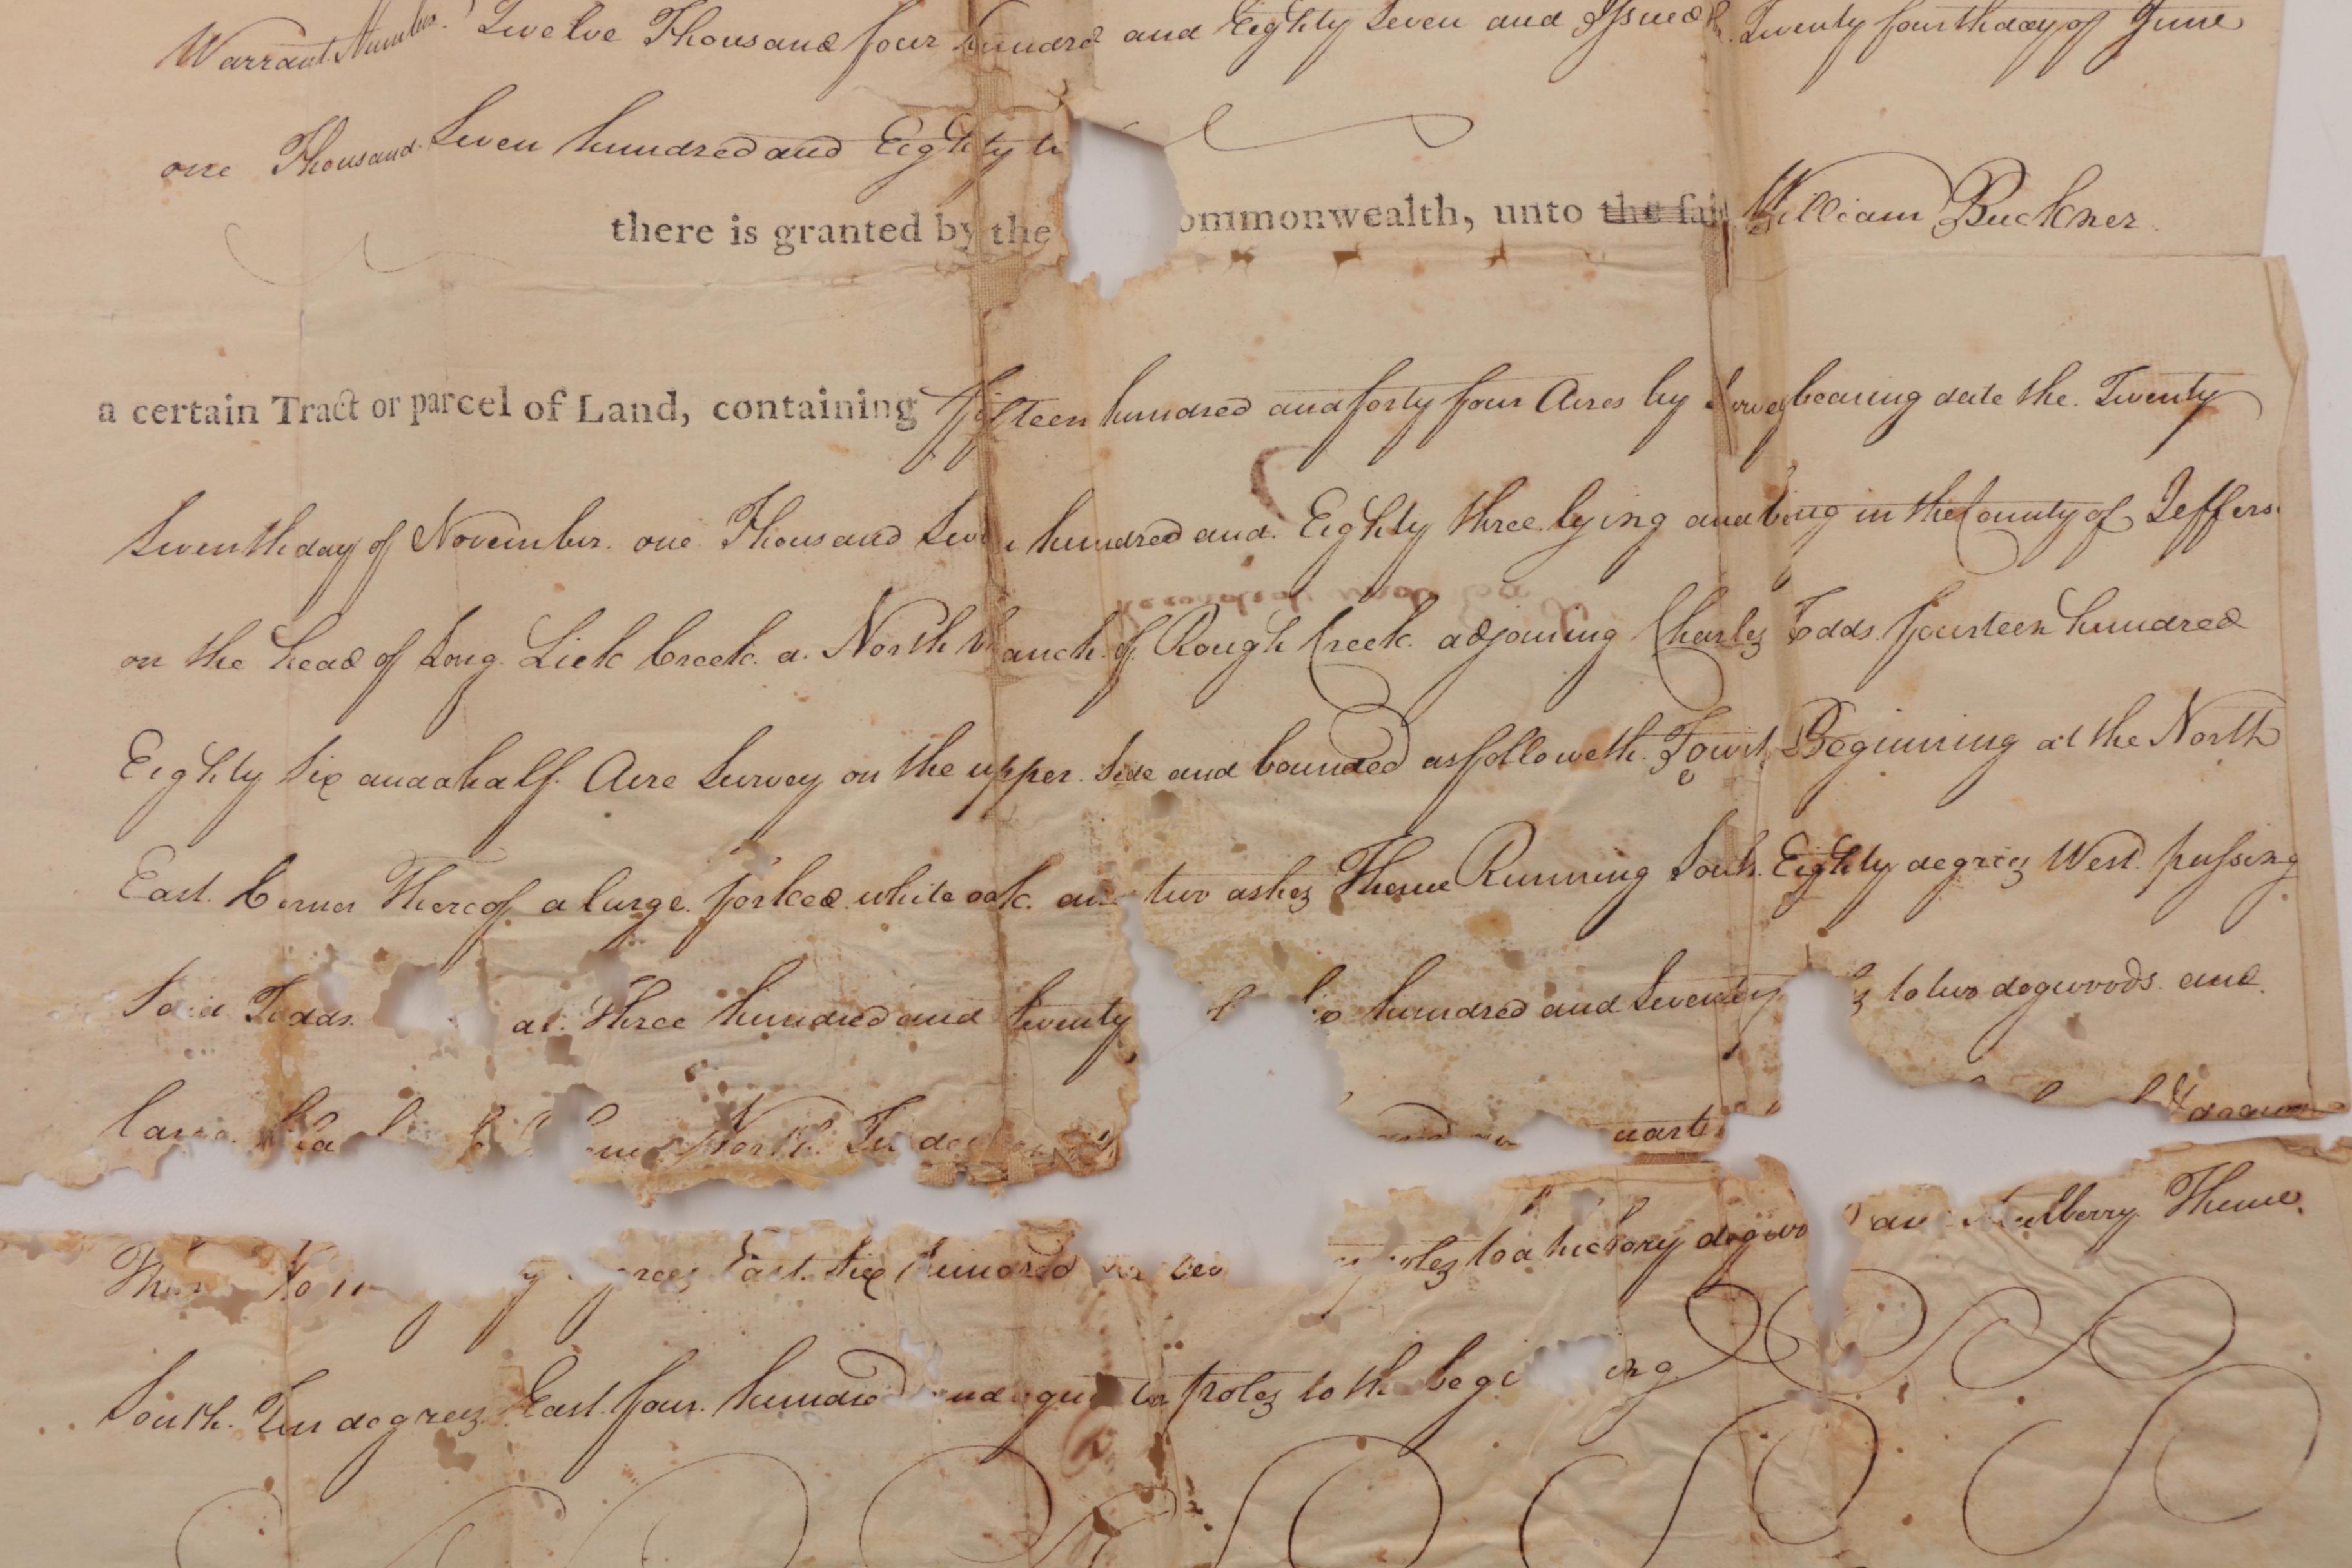 Warrant Number Twelve Thousand four hundred and Eighty Seven and Issued Twenty fourth day of June
one Thousand Seven hundred and Eighty
there is granted by the ommonwealth, unto the said William Buckner
a certain Tract or parcel of Land, containing fifteen hundred and forty four Acres by Survey bearing date the Twenty
Seventh day of November one Thousand Seven hundred and Eighty three lying and being in the County of Jefferso
on the head of Long Lick Creek a North branch of Rough Creek adjoining Charles Todds fourteen hundred
Eighty Six and a half Acre Survey on the upper Side and bounded as followeth Towit Beginning at the North
East Corner Thereof a large forked white oak and two ashes Thence Running South Eighty degrees West passing
Said Todds at Three hundred and Seventy hundred and Seventy to two dogwoods and
North Ten
East Six hundred to a hickory dogwo and Mulberry Thence
South Ten degrees East four hundred and quarter poles to the begi ing